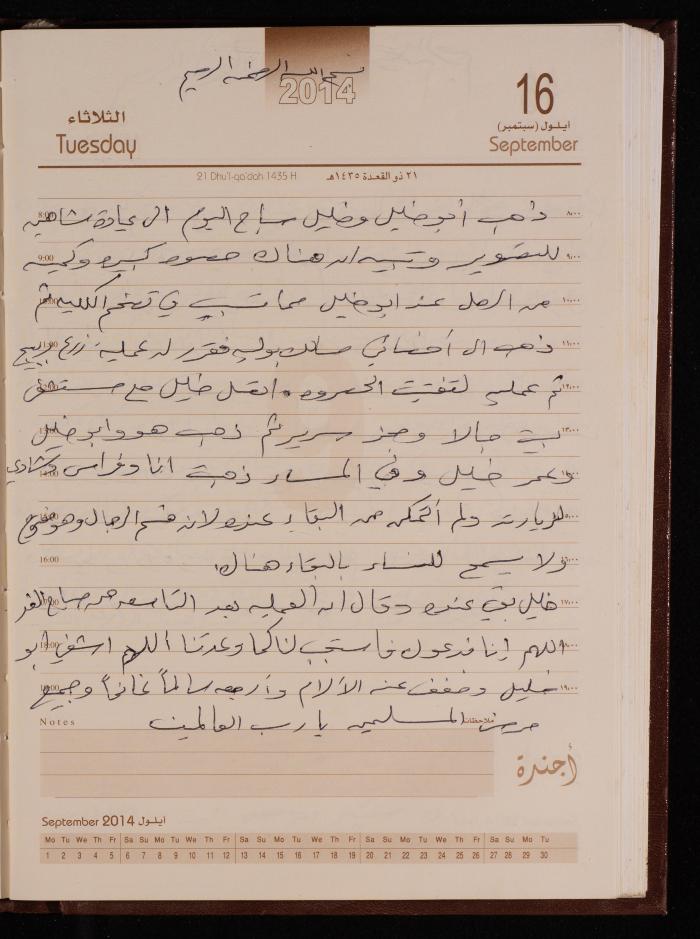 بسم الله الرحمن الرحيم
2014
16
ايلول (سبتمبر)
September
الثلاثاء
Tuesday
21 Dhu'l-qa'dah 1435 H ٢١ ذو القعدة ١٤٣٥هـ
ذهب أبو خليل وخليل صباح اليوم الى عيادة شاهين
للتصوير وتبين ان هناك حصوه كبيره وكميه
من الرمل عند ابو خليل مما تسبب في تضخم الكليه ثم
ذهب الى أخصائي مسالك بوليه فقرر له عملية زرع بربيج
ثم عمليه لتفتيت الحصوه واتصل خليل مع مستشفى
بيت جالا وحجز سرير ثم ذهب هو وابو خليل
وعمر خليل وفي المساء ذهبت انا وفراس وشادي
لزيارته ولم أتمكن من البقاء عنده لانه قسم الرجال وهو مفتوح
ولا يسمح للنساء بالبقاء هناك
خليل بقي عنده وقال ان العمليه بعد التاسعه من صباح الغد
اللهم إنا ندعوك فاستجب لنا كما وعدتنا اللهم اشفي ابو
خليل وخفف عنه الآلام وأرجعه سالماً غانماً وجميع
مرضى المسلمين يا رب العالمين
8:00
٨:٠٠
9:00
٩:٠٠
10:00
١٠:٠٠
11:00
١١:٠٠
١٢:٠٠
١٣:٠٠
16:00
١٧:٠٠
18:00
١٩:٠٠
Notes
ملاحظات
أجندة
September 2014 ايلول
Mo Tu We Th Fr Sa Su Mo Tu We Th Fr Sa Su Mo Tu We Th Fr Sa Su Mo Tu We Th Fr Sa Su Mo Tu
1 2 3 4 5 6 7 8 9 10 11 12 13 14 15 16 17 18 19 20 21 22 23 24 25 26 27 28 29 30